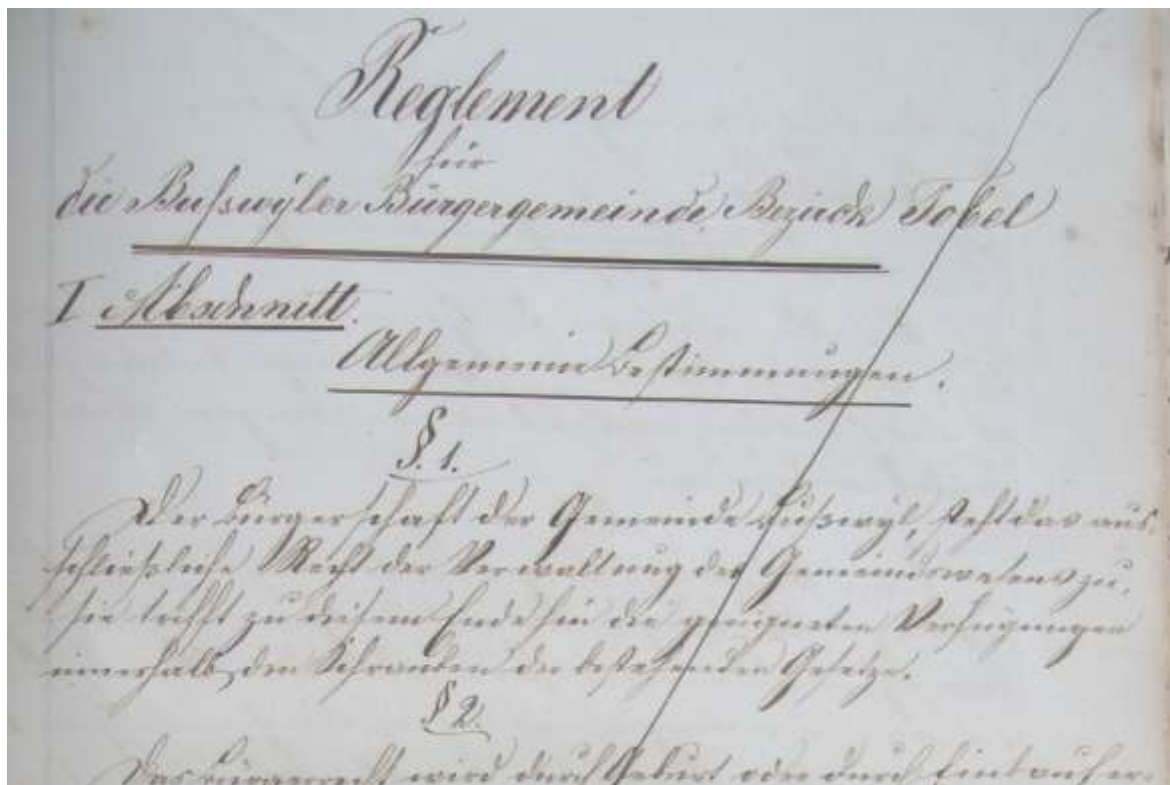 Reglement
für
die Bußwyler Bürgergemeinde, Bezirck Tobel
I Abschnitt.
Allgemeine Bestimmungen.
§. 1.
Der Bürgerschaft der Gemeinde Bußwyl, steht das aus-
schließliche Recht der Verwaltung des Gemeindswesens zu,
sie trifft zu diesem Ende hin die geeigneten Verfügungen
innerhalb den Schranken der bestehenden Gesetze.
§ 2.
Das Bürgerrecht wird durch Geburt oder durch Einkauf er-